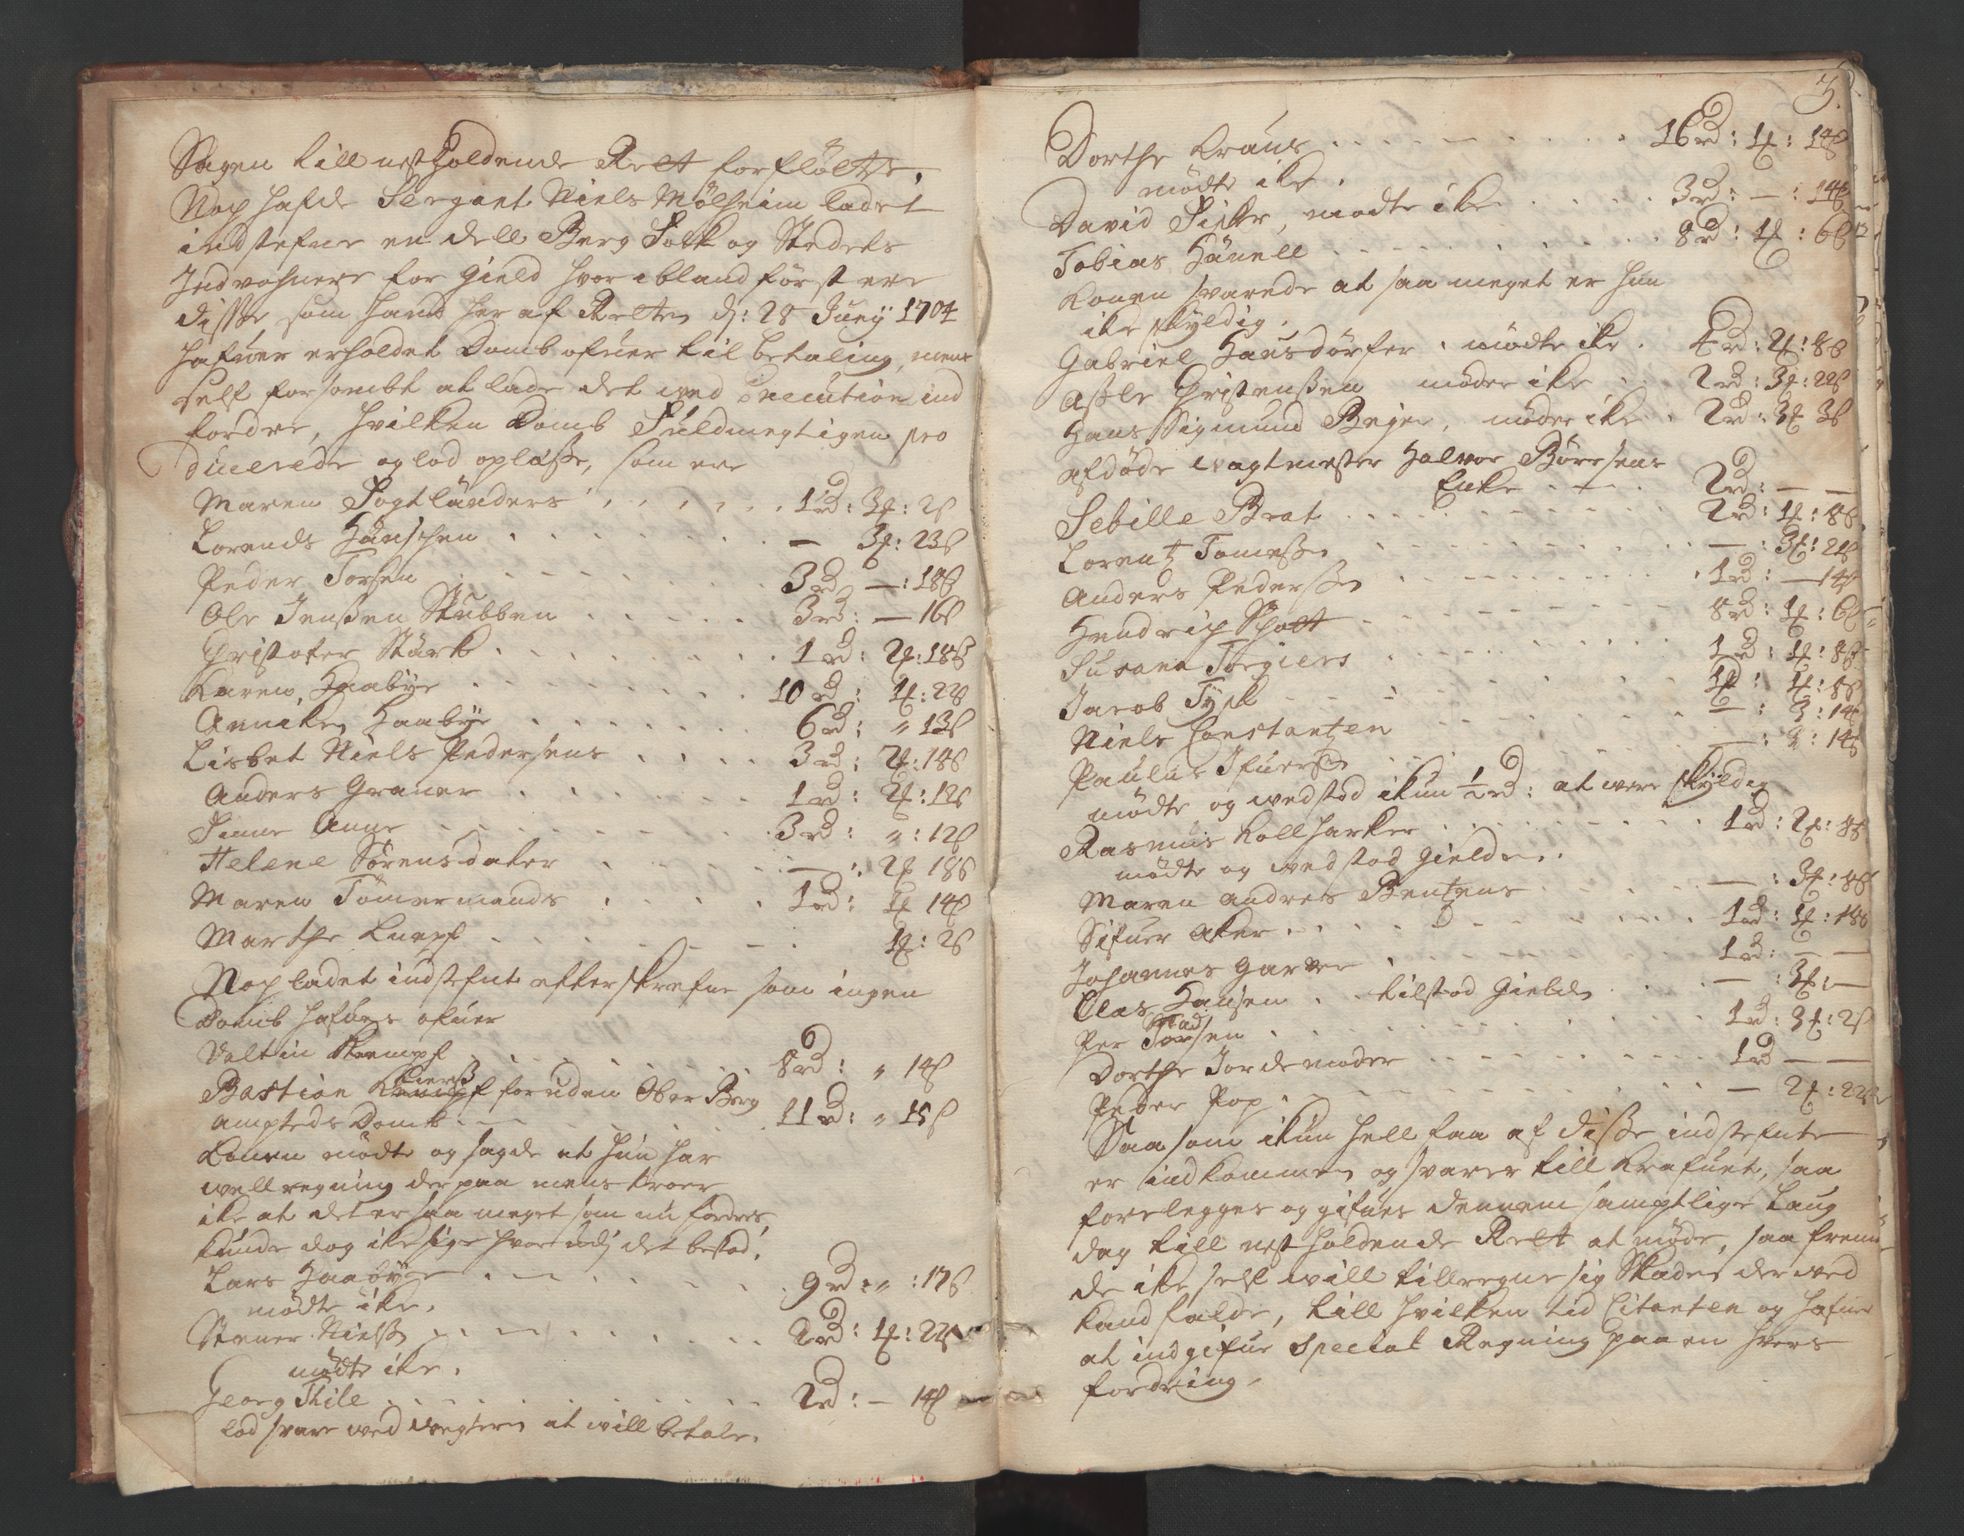 Sagen till nest holdende Rett forfløttes.
Noch hafde Sergant Niels Mølheim ladet
indstefne en dell Berg Folk og Stedets
Indvohnere for gield hvor iblandt først ere
disse som hand her af Retten dj: 28 Junij 1704
hafuer erholdet Domb ofuer til betaling, mens
self forsømbt at lade det ved Execution ind
fordre, hvilken Domb Fuldmegtigen pro
ducerede og lod oplæsse, som ere
Maren Fogtländers . . . . . 1 rd: 3 : 2 s
Lorends Hänschen . . . . — 3 : 23 s
Peder Torsen . . . . 3 rd — : 18 s
Ole Jenssen Stubben . . . . 3 rd: — 16 s
Christofer Stärk . . . . 1 rd: 2 : 18 s
Karen Haabye . . . . 10 rd: 1 : 22 s
Anniken Haabye . . . . 6 rd: " 13 s
Lisbet Niels Pedersens . . . . 3 rd: 2 : 18 s
Anders Graner . . . . 1 rd: 2 : 12 s
Sinne Anne . . . . 3 rd: " : 12 s
Helene Sørensdater . . . . — : 2 18 s
Maren Tömermands . . . . 1 rd: 1 14 s
Marthe Knapf . . . . 1 : 2 s
Noch ladet indstefnt efterskrefne som ingen
Domb hafdes ofuer
Valtin Kempf . . . . 8 rd: " 14 s
Bastian foruden Ober Berg
amptets Domb . . . . 11 rd: " 15 s
Konen mødte og sagde at hun har
well regning derpaa mens troer
ike at det er saa meget som nu fordres,
kunde dog ike sige hvor udj det bestod.
Lars Haabye . . . . 9 rd: " : 17 s
mødte ike.
Stener Nielss . . . . 2 rd: 1 : 22 s
mødte ike.
Georg Thile . . . . 2 rd: — 14 s
lod svare ved at will betale.
3.
Dorthe Kraus . . . . 16 rd: 1 : 14 s
mødte ike.
David Fisker, mødte ike . . . . 3 rd: — : 14 s
Tobias Hänell . . . . 8 rd: 1 : 6 s
Konen svarede at saa meget er hun
ike skyldig.
Gabriel Hausdörfer . mødte ike . 4 rd: 2 : 8 s
Assle Christenssen møder ike . 2 rd: 3 : 22 s
Hans Sigmund Bejer, møder ike . 2 rd: 3 3 s
afdøde wagtmester Halvor Børresens
Enke . . . 2 rd: — —
Sebille Brat . . . . 2 rd: 1 : 8 s
Lorentz Tomess . . . . — : 3 : 2 s
Anders Pederss . . . . 1 rd: — 14 s
Hendrich Schott . . . . 8 rd: 1 : 6 s
Susana Torgiers . . . . 1 rd: 1 : 8 s
Jacob Tysk . . . . 1 : 8 s
Niels Constantzen . . . . — : 3 : 14 s
Paulus Ifuerss . . . . — : 2 : 14 s
mødte og wedstod ikun 1/2 rd: at were skyldig
Rasmus Kollharker . . . . 1 rd: 2 : 8 s
mødte og wedstod gielden.
Maren Andres Bentzens . . . . — : 3 : 8 s
Sifuer Aker . . . . 1 rd: 1 : 18 s
Johannes Garver . . . . 1 rd: — —
Clas Hansen . . tilstod Gielden . . . — : 3 : —
Per Madsen . . . . 1 rd: 3 : 2 s
Dorthe Jordemoder . . . . 1 rd — —
Peder Pop . . . . — 2 : 22 s
Saasom ikun hell faa af disse indstefnte
er indkommen og svarer till Krafuet, saa
forelegges og gifues dennem samptlige Laug
dag till nest holdende Rett at møde, saa frem
de ike self will tillregne sig Skaden der ved
kand falde, till hvilken tid Citanten og hafuer
at indgifue special Regning paa en hvers
fordring.